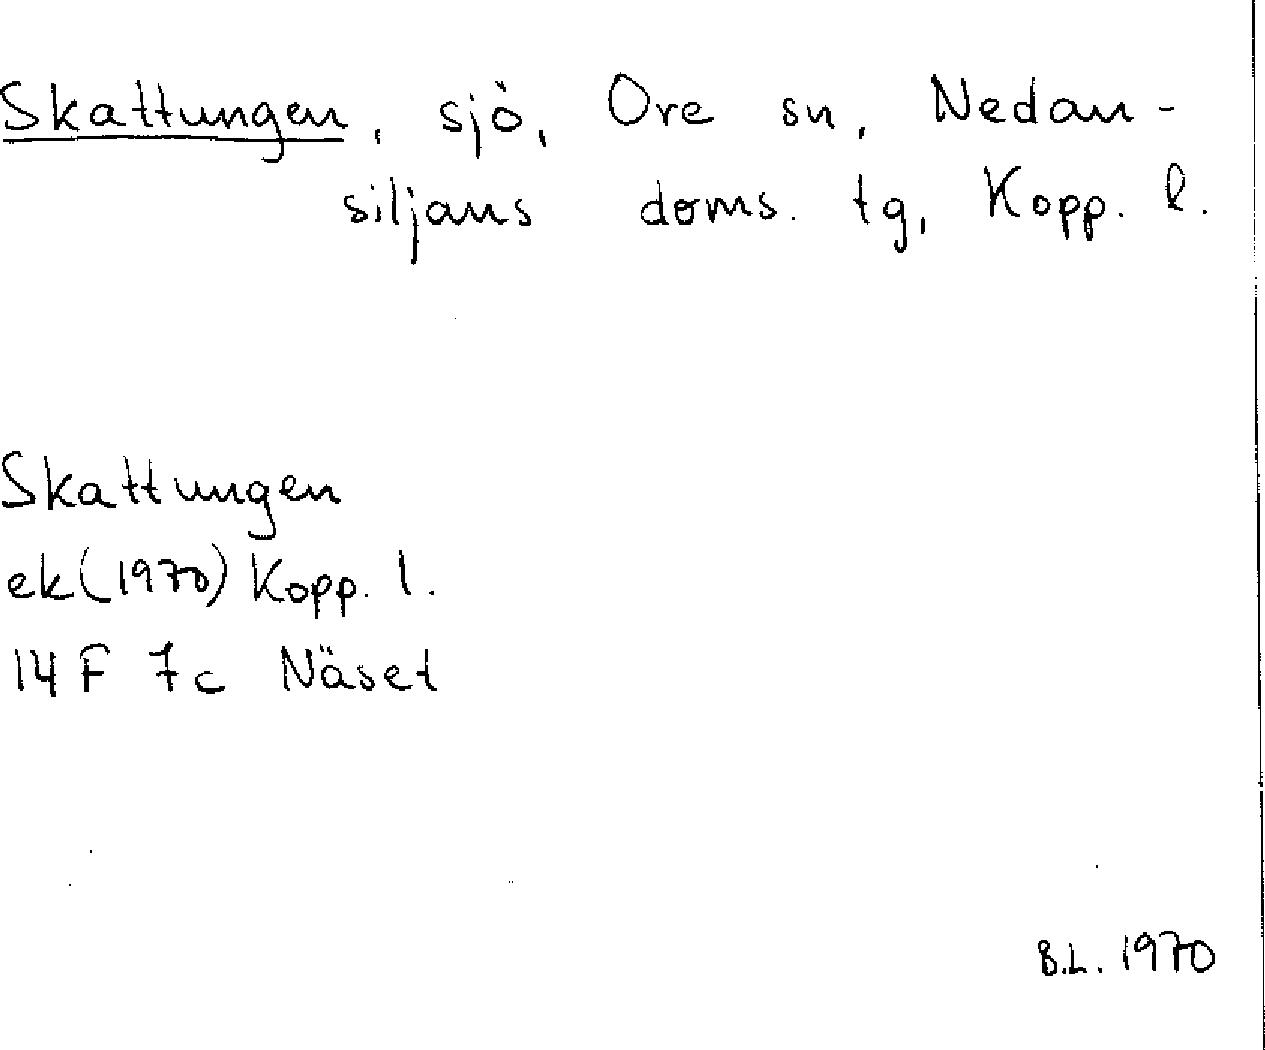 Skattungen, sjö, Ore sn, Nedan-
siljans doms. tg, Kopp. l.
Skattungen
ek (1970) Kopp. l.
14 F 7c Näset
B.L. 1970